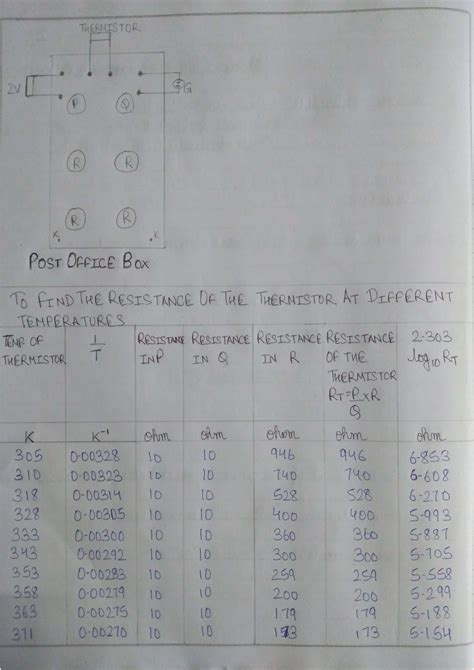 THERMISTOR
2V
G
P Q
R R
R R
K K
POST OFFICE BOX
TO FIND THE RESISTANCE OF THE THERMISTOR AT DIFFERENT
TEMPERATURES
TEMP OF THERMISTOR 1/T RESISTANCE IN P RESISTANCE IN Q RESISTANCE IN R RESISTANCE OF THE THERMISTOR RT=P/Q×R 2.303 log10 RT
K K-1 ohm ohm ohm ohm
305 0.00328 10 10 946 946 6.853
310 0.00323 10 10 740 740 6.608
318 0.00314 10 10 528 528 6.270
328 0.00305 10 10 400 400 5.993
333 0.00300 10 10 360 360 5.887
343 0.00292 10 10 300 300 5.705
353 0.00283 10 10 259 259 5.558
358 0.00279 10 10 200 200 5.299
363 0.00275 10 10 179 179 5.188
371 0.00270 10 10 173 173 5.154